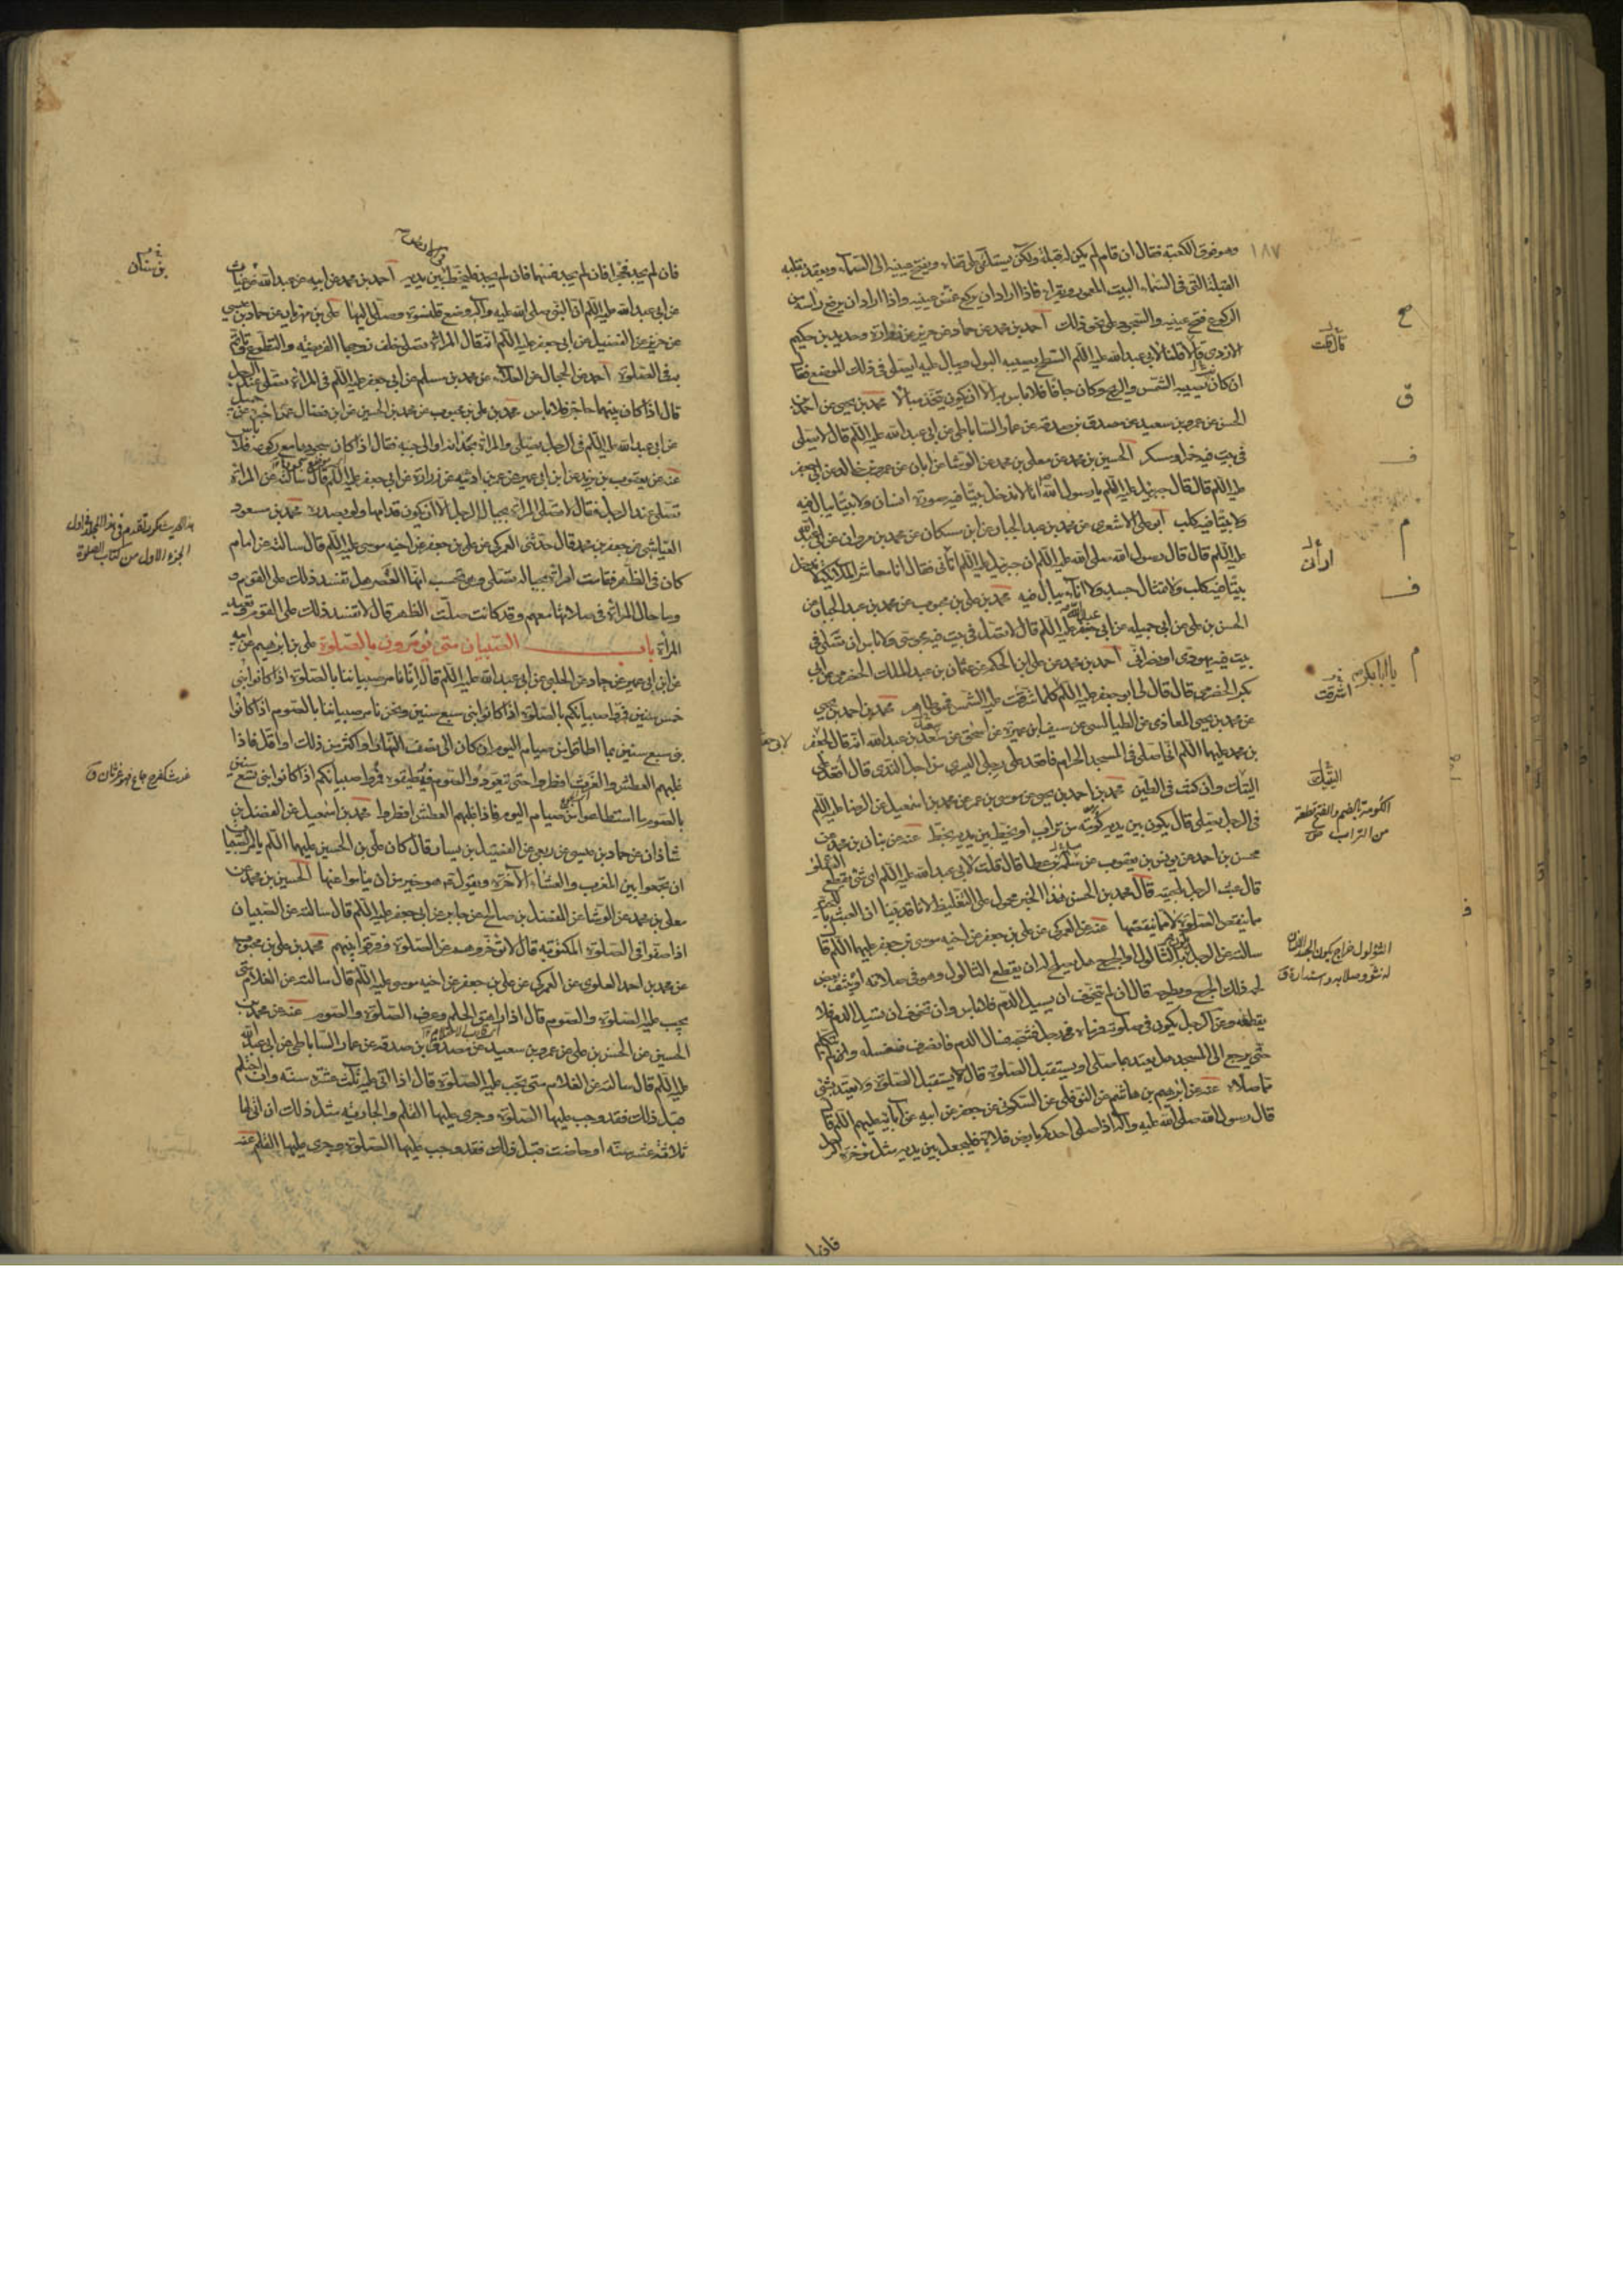 ١٨٧
وهو فوق الكعبة فقال ان قام لم يكن له قبلة ولكن يستلقي على قفاه ويفتح عينيه الى السماء ويعقد بقلبه
القبلة التي في السماء البيت المعمور ويقرأ فاذا اراد ان يركع غمض عينيه واذا اراد ان يرفع رأسه من
الركوع فتح عينيه والسجود على نحو ذلك احمد بن محمد عن حماد عن حريز عن زرارة وحديد بن حكيم
الازدي قالا قلنا لابي عبد الله عليه السلم السطح يصيبه البول ويبال عليه ايصلى في ذلك الموضع فقا
ان كان يصيبه الشمس والريح وكان جافا فلا باس به الا ان يكون يتخذ مبالا محمد بن يحيى عن احمد بن
الحسن عن عمرو بن سعيد عن مصدق بن صدقة عن عمار الساباطي عن ابي عبد الله عليه السلم قال لا تصلى
في بيت فيه خمر او مسكر الحسين بن محمد عن معلى بن محمد عن الوشا عن ابان عن عمرو بن خالد عن ابي جعفر
عليه السلم قال قال جبرئيل عليه السلم يا رسول الله انا لا ندخل بيتا فيه صورة انسان ولا بيتا يبال فيه
ولا بيتا فيه كلب ابو علي الاشعري عن محمد بن عبد الجبار عن ابن مسكان عن محمد بن مروان عن ابي عبد الله
عليه السلم قال قال رسول الله صلى الله عليه ان جبرئيل عليه السلم اتاني فقال انا معاشر الملائكة لا ندخل
بيتا فيه كلب ولا تمثال جسد ولا اناء يبال فيه محمد بن علي بن محبوب عن محمد بن عبد الجبار عن
الحسن بن علي عن ابي جميله عن ابي جعفر عليه السلم قال لا تصل في بيت فيه مجوسي ولا باس ان تصلي في
بيت فيه يهودي او نصراني احمد بن محمد عن علي بن الحكم عن عثمان بن عبد الملك الحضرمي عن ابي
بكر الحضرمي قال قال لي ابو جعفر عليه السلم كلما اشرقت عليه الشمس فهو طاهر محمد بن احمد بن يحيى
عن محمد بن يحيى المعاذي عن الطيالسي عن سيف بن عميرة عن اسحق عن سعد بن عبد الله انه قال لجعفر
بن محمد عليهما السلم اني اصلي في المسجد الحرام فاقعد على رجلي اليسرى من اجل الندى قال اقعد على
اليتك وان كنت في الطين محمد بن احمد بن يحيى عن موسى بن عمر عن محمد بن اسمعيل عن الرضا عليه السلم
في الرجل يصلي قال يكون بين يديه كومة من تراب او يخط بين يديه بخط عنه عن بنان بن محمد عن
محسن بن احمد عن يونس بن يعقوب عن مسلمة بن عطا قال قلت لابي عبد الله عليه السلم اي شيء يقطع الصلوة
قال عبث الرجل بلحيته قال محمد بن الحسن هذا الخبر محمول على التغليظ لانا قد بينا ان العبث باللحية
مما ينقص الصلوة لا مما ينقضها عنه عن العمركي عن علي بن جعفر عن اخيه موسى بن جعفر عليهما السلم قا
سالته عن الرجل يكون به الثالول او الجرح هل يصلح له ان يقطع الثالول وهو في صلاته او ينتف بعض
لحمه من ذلك الجرح ويطرحه قال ان لم يتخوف ان يسيل الدم فلا باس وان تخوف ان يسيل الدم فلا
يقطعه وعن الرجل يكون في صلوته فرماه رجل فشجه فسال الدم فانصرف فغسله ولم يتكلم
حتى رجع الى المسجد هل يعتد بما صلى او يستقبل الصلوة قال لا يستقبل الصلوة ولا يعتد بشي
مما صلاه عنه عن ابرهيم بن هاشم عن النوفلي عن السكوني عن جعفر عن ابيه عن آبائه عليهم السلم قا
قال رسول الله صلى الله عليه وآله اذا صلى احدكم بارض فلاة فليجعل بين يديه مثل مؤخرة الرحل
فان لم
قالت
ارأيت
يا ابا بكر
اشرقت
اليتيك
الكومة بالضم والفتح قطعة
من التراب
الثؤلول خراج يكون بالجسد
له نتو وصلابة واستدارة ق
فان لم يجد فحجرا فان لم يجد فسهما فان لم يجد فليخط بين يديه احمد بن محمد عن ابيه عن عبد الله عن غياث
عن ابي عبد الله عليه السلم ان النبي صلى الله عليه وآله وضع قلنسوة وصلى اليها علي بن مهزيار عن حماد بن عيسى
عن حريز عن الفضيل عن ابي جعفر عليه السلم انه قال المراة تصلي خلف زوجها الفريضة والتطوع وتاتم
به في الصلوة احمد عن الحجال عن العلاء عن محمد بن مسلم عن ابي جعفر عليه السلم في المراة تصلي عند الرجل
قال اذا كان بينهما حاجز فلا باس محمد بن علي بن محبوب عن محمد بن الحسين عن ابن فضال عمن اخبره عن جميل
عن ابي عبد الله عليه السلم في الرجل يصلي والمراة بحذاه او الى جنبه فقال اذا كان سجودها مع ركوعه فلا باس
عنه عن يعقوب بن يزيد عن ابن ابي عمير عن عمر بن اذينه عن زرارة عن ابي جعفر عليه السلم قال سالته عن المراة
تصلي عند الرجل فقال لا تصلي المراة بحيال الرجل الا ان يكون قدامها ولو بصدره محمد بن مسعود
العياشي عن جعفر بن محمد قال حدثني العمركي عن علي بن جعفر عن اخيه موسى عليه السلم قال سالته عن امام
كان في الظهر فقامت امراة بحياله تصلي وهي تحسب انها العصر هل تفسد ذلك على القوم و
وما حال المراة في صلاتها معهم وقد كانت صلت الظهر قال لا تفسد ذلك على القوم وتعيد
المراة باب الصبيان متى يؤمرون بالصلوة علي بن ابرهيم عن ابيه
عن ابن ابي عمير عن حماد عن الحلبي عن ابي عبد الله عليه السلم قال انا نامر صبياننا بالصلوة اذا كانوا بني
خمس سنين فمروا صبيانكم بالصلوة اذا كانوا بني سبع سنين ونحن نامر صبياننا بالصوم اذا كانوا
بني سبع سنين بما اطاقوا من صيام اليوم ان كان الى نصف النهار او اكثر من ذلك او اقل فاذا
غلبهم العطش والغرث افطروا حتى يتعودوا الصوم ويطيقوه فمروا صبيانكم اذا كانوا بني تسع سنين
بالصوم ما استطاعوا من صيام اليوم فاذا غلبهم العطش افطروا محمد بن اسمعيل عن الفضل بن
شاذان عن حماد بن عيسى عن ربعي عن الفضيل بن يسار قال كان علي بن الحسين عليهما السلم يامر الصبيان
ان يجمعوا بين المغرب والعشاء الآخرة ويقول هو خير من ان يناموا عنها الحسين بن محمد عن
معلى بن محمد عن الوشا عن المفضل بن صالح عن جابر عن ابي جعفر عليه السلم قال سالته عن الصبيان
اذا صفوا في الصلوة المكتوبة قال لا تؤخروهم عن الصلوة وفرقوا بينهم محمد بن علي بن محبوب
عن محمد بن احمد العلوي عن العمركي عن علي بن جعفر عن اخيه موسى عليه السلم قال سالته عن الغلام متى
يجب عليه الصلوة والصوم قال اذا راهق الحلم وعرف الصلوة والصوم عنه عن محمد بن
الحسين عن الحسن بن علي عن عمرو بن سعيد عن مصدق بن صدقة عن عمار الساباطي عن ابي عبد الله
عليه السلم قال سالته عن الغلام متى تجب عليه الصلوة قال اذا اتى عليه ثلث عشرة سنة وان احتلم
قبل ذلك فقد وجب عليه الصلوة وجرى عليه القلم والجارية مثل ذلك ان اتى لها
ثلاثة عشر سنة او حاضت قبل ذلك فقد وجب عليها الصلوة وجرى عليها القلم عنه
هذا الحديث مكرر تقدم في
الجزء الاول من كتاب الصلوة
غرث كفرح جاع فهو غرثان ق